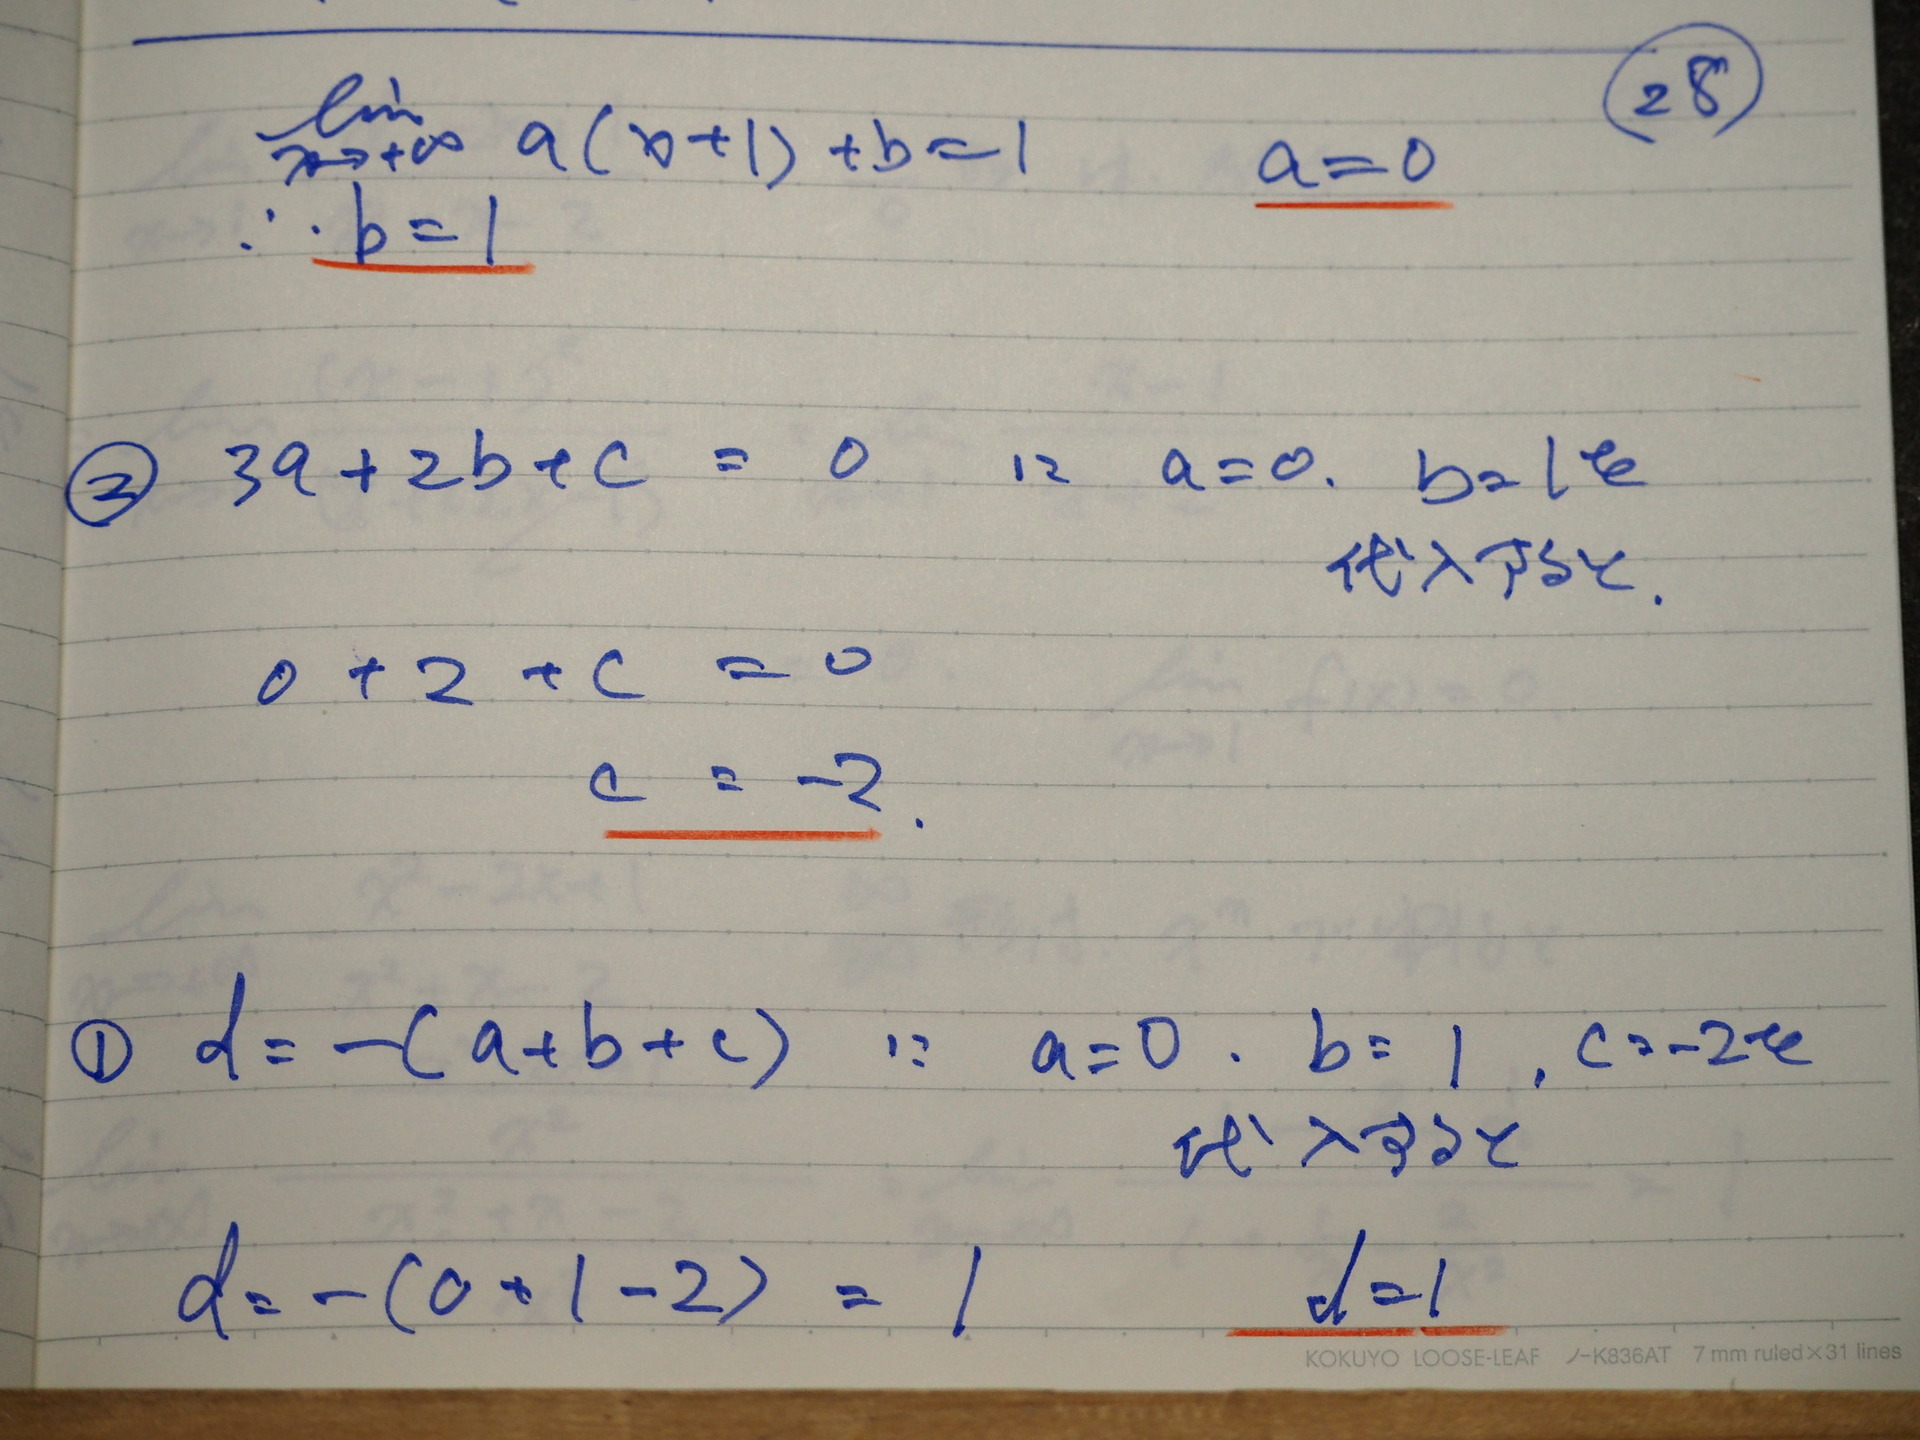 28
lim a(x+1)+b=1 a=0
x→+∞
∴ b=1
② 3a+2b+c = 0 に a=0. b=1を
代入すると.
0+2+c=0
c = -2.
① d=-(a+b+c) に a=0. b=1, c=-2を
代入すると
d=-(0+1-2) = 1 d=1
KOKUYO LOOSE-LEAF ノ-K836AT 7mm ruled×31 lines